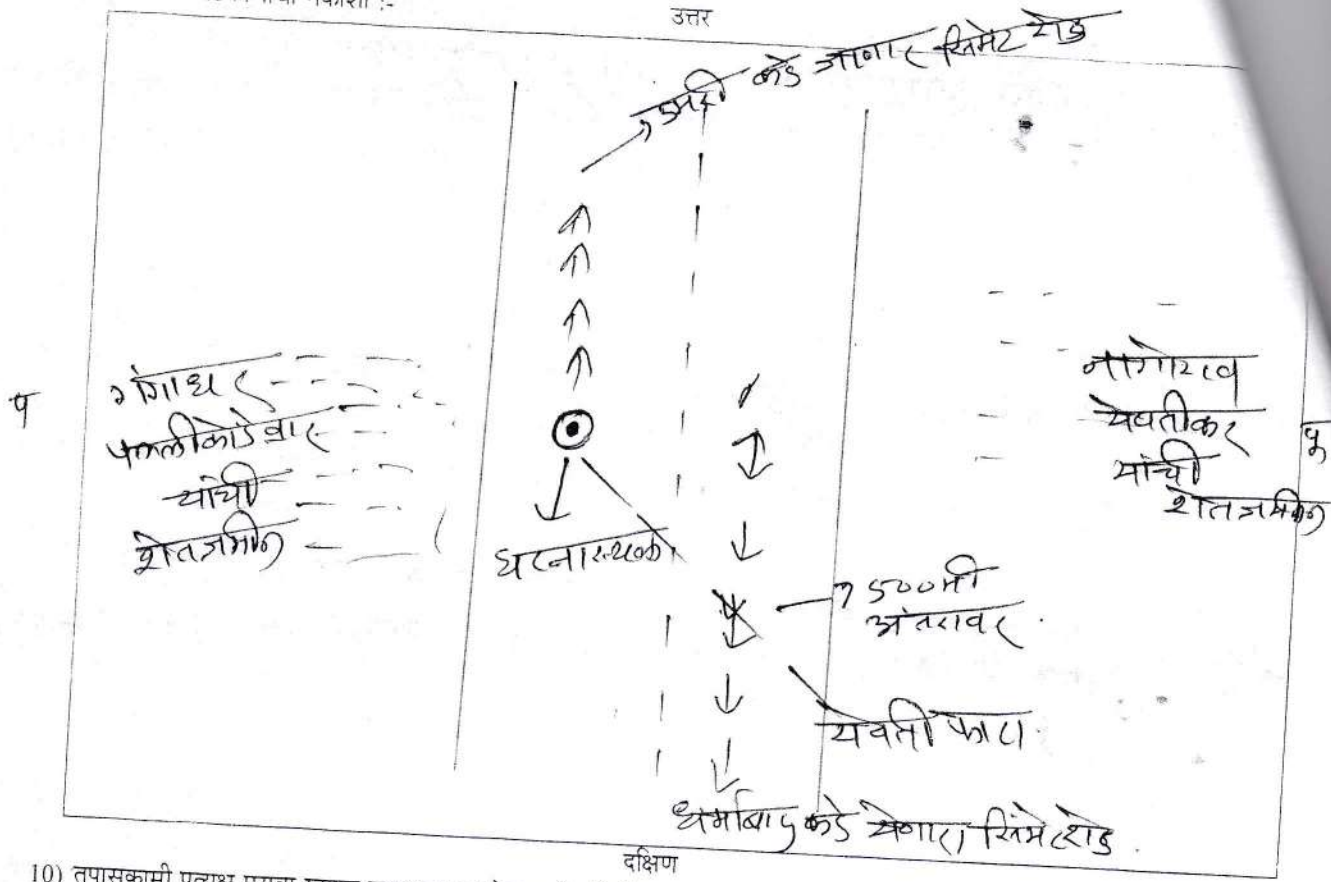 नकाशा :-
उत्तर
उमरी कडे जाणारा सिमेंट रोड
प
गंगाधर
यांची
शेतजमीन
घटनास्थळ
नागोराव
येवतीकर
यांची
शेतजमीन
पू
500मी
अंतरावर
येवती फाटा
धर्माबाद कडे येणारा सिमेंट रोड
दक्षिण
10) तपासकामी